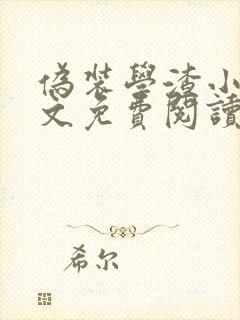 偽裝學渣小
文免費閱讀
希尔